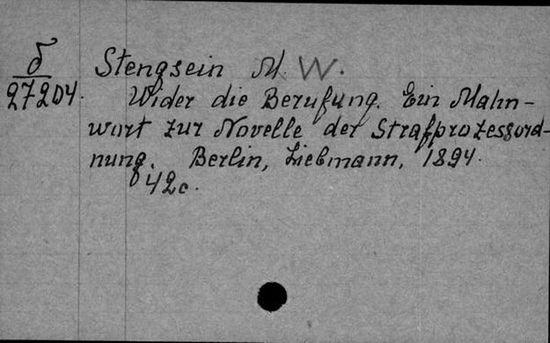 δ Stengsein M. W.
27204. Wider die Berufung. Ein Mahn-
wort zur Novelle der Strafprozessord-
nung. Berlin, Liebmann, 1894.
42c.